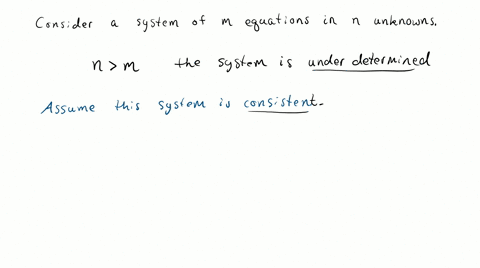 Consider a system of m equations in n unknowns.
n > m the system is under determined
Assume this system is consistent.